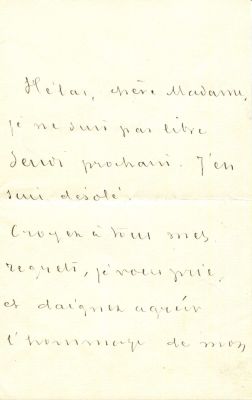 Hélas, chère Madame,
je ne suis pas libre
Jeudi prochain. J'en
suis désolé.
Croyez à tous mes
regrets, je vous prie,
et daignez agréer
l'hommage de mon